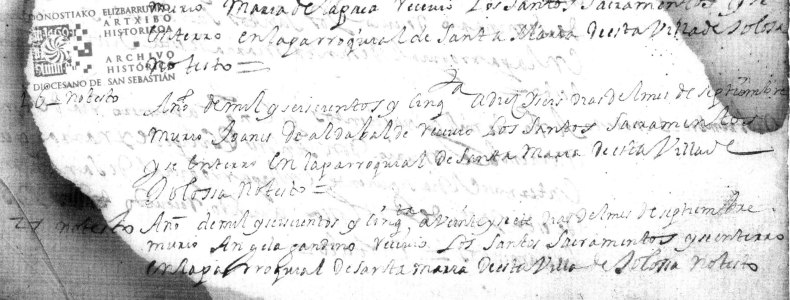 DONOSTIAKO ELIZBARRUTIKO
ARTXIBO
HISTORIKOA
ARCHIVO
HISTÓRICO
DIOCESANO DE SAN SEBASTIÁN
murio Maria de Recivio Los Santos Sacramentos y se
enterro en la parroquial de Santa Maria desta Villa de Tolosa
No testo =
16 - no testo
Año de mil y seiscientos y cinqta a diez y seis dias del mes de septiembre
murio de aldabalde Recivio Los Santos Sacramentos
y se enterro en la parroquial de Santa Maria desta Villa de
Tolossa No testo =
27 no testo
Año de mil y seiscientos y cinqta a veinte y siete dias del mes de septiembre
murio Angela gandino Recivio Los Santos Sacramentos y se enterro
en la parroquial de Santa maria desta Villa de Tolossa No testo